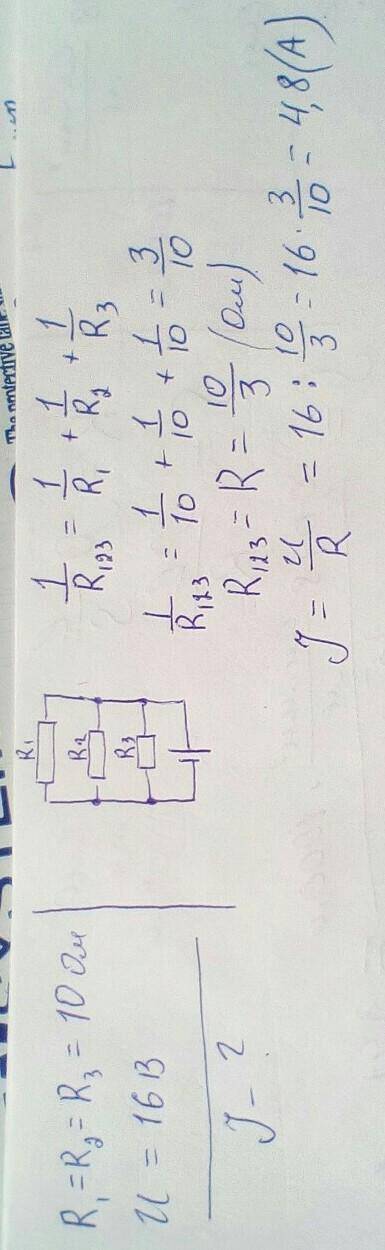 R₁ = R₂ = R₃ = 10 Ом
U = 16 В
J - ?
R₁
R₂
R₃
1/R₁₂₃ = 1/R₁ + 1/R₂ + 1/R₃
1/R₁₂₃ = 1/10 + 1/10 + 1/10 = 3/10
R₁₂₃ = R = 10/3 (Ом)
J = U/R = 16 : 10/3 = 16 · 3/10 = 4,8 (А)
The protective